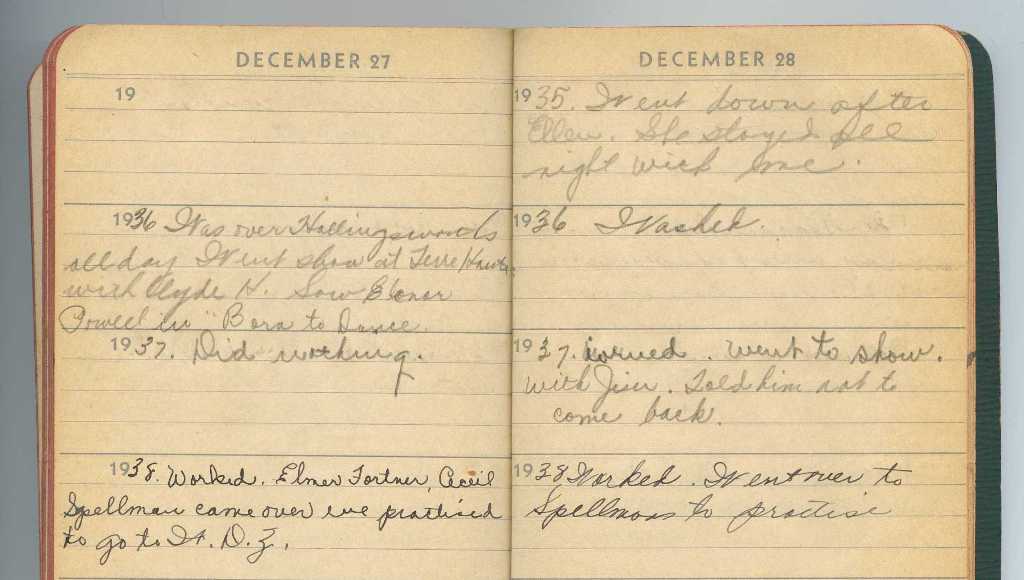 DECEMBER 27
19
1936 Was over Hollingsworths
all day Went show at Terre Haute
with Clyde H. Saw Elenor
Powell in "Born to Dance.
1937. Did nothing.
1938. Worked. Elmer Fortner, Cecil
Spellman came over we practised
to go to W. D. Z.
DECEMBER 28
1935. Went down after
Ellen. She stayed all
night with me.
1936 Washed.
1937. ironed. went to show.
with Jim. Told him not to
come back.
1938 Worked. Went over to
Spellmans to practise